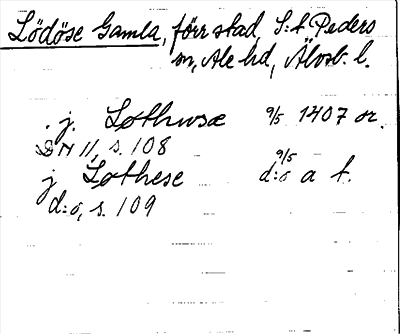 Lödöse Gamla, förr stad, S:t Peders
sn, Ale hd, Älvsb. l.
. j. Løthusæ 9/5 1407 or.
DN 11, s. 108
j Løthese 9/5 d:o a t.
d:o, s. 109